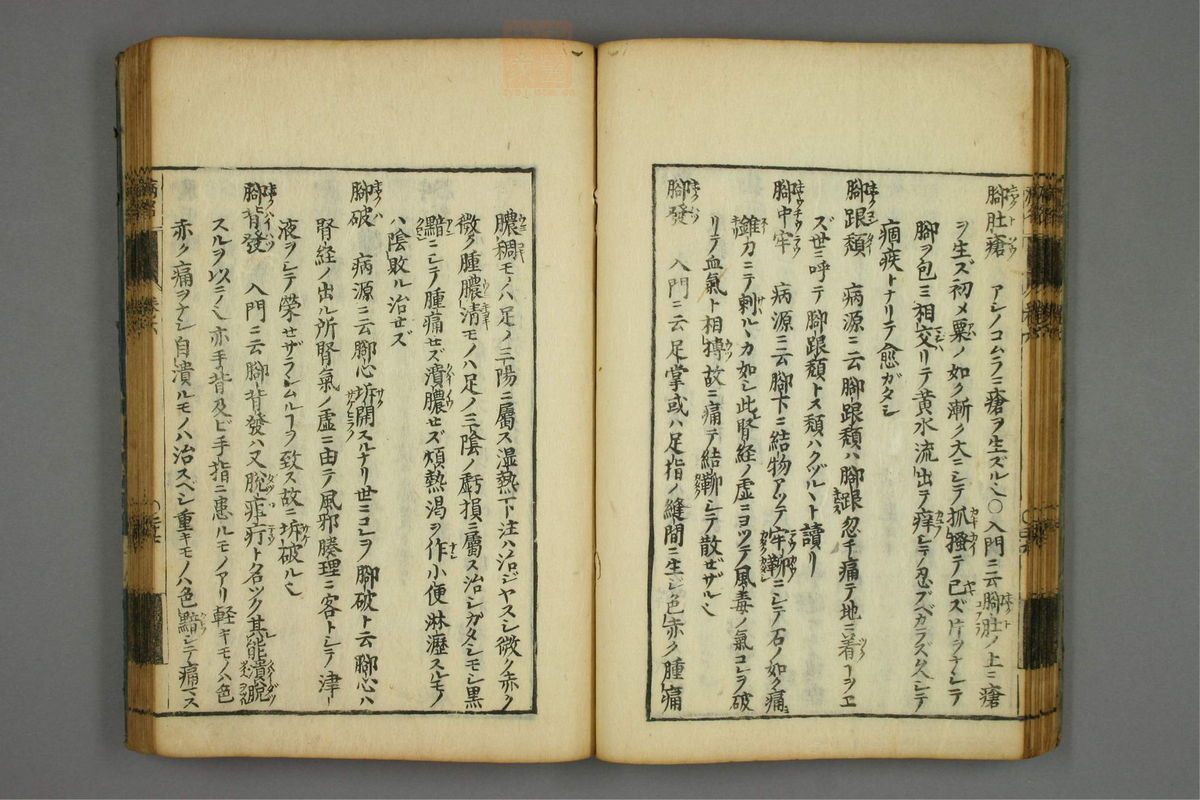 脚肚瘡 アシノコムラニ瘡ヲ生ズル也〇入門ニ云脚肚ノ上ニ瘡
ヲ生ズ初メ粟ノ如ク漸ク大ニシテ抓搔テ已ズ片ヲナシテ
脚ヲ包ミ相交リテ黄水流出テ痒シテ忍ブベカラズ久シテ
痼疾トナリテ愈ガタシ
脚跟頽 病源ニ云脚跟頽ハ脚跟忽チ痛テ地ニ着ヿヲヱ
ズ世ニ呼テ脚跟頽トス頽ハクヅルヽト讀リ
脚中牢 病源ニ云脚下ニ結物アツテ牢鞕ニシテ石ノ如ク痛
錐刀ニテ刺ルヽカ如シ此腎経ノ虚ニヨツテ風毒ノ氣コレヲ破
リテ血氣ト相搏故ニ痛テ結鞕シテ散ゼザル也
脚發 入門ニ云足掌或ハ足指ノ縫間ニ生ジ色赤ク腫痛
膿稠モノハ足ノ三陽ニ屬ス湿熱下注ハ治ジヤスシ微ク赤ク
微ク腫膿清モノハ足ノ三陰ノ虧損ニ屬ス治シガタシモシ黒
黯ニシテ腫痛セズ潰膿セズ煩熱渇ヲ作小便淋瀝スルモノ
ハ陰敗ル治セズ
脚破 病源ニ云脚心坼開スルナリ世ニコレヲ脚破ト云脚心ハ
腎経ノ出ル所腎氣ノ虚ニ由テ風邪腠理ニ客トシテ津
液ヲシテ榮セザラシムルヿヲ致ス故ニ坼破ル也
脚背發 入門ニ云脚背發ハ又脱疳疔ト名ツク其能潰脱
スルヲ以ニ也亦手背及ビ手指ニ患ルモノアリ軽キモノハ色
赤ク痛ヲナシ自潰ルモノハ治スベシ重キモノハ色黯シテ痛マス